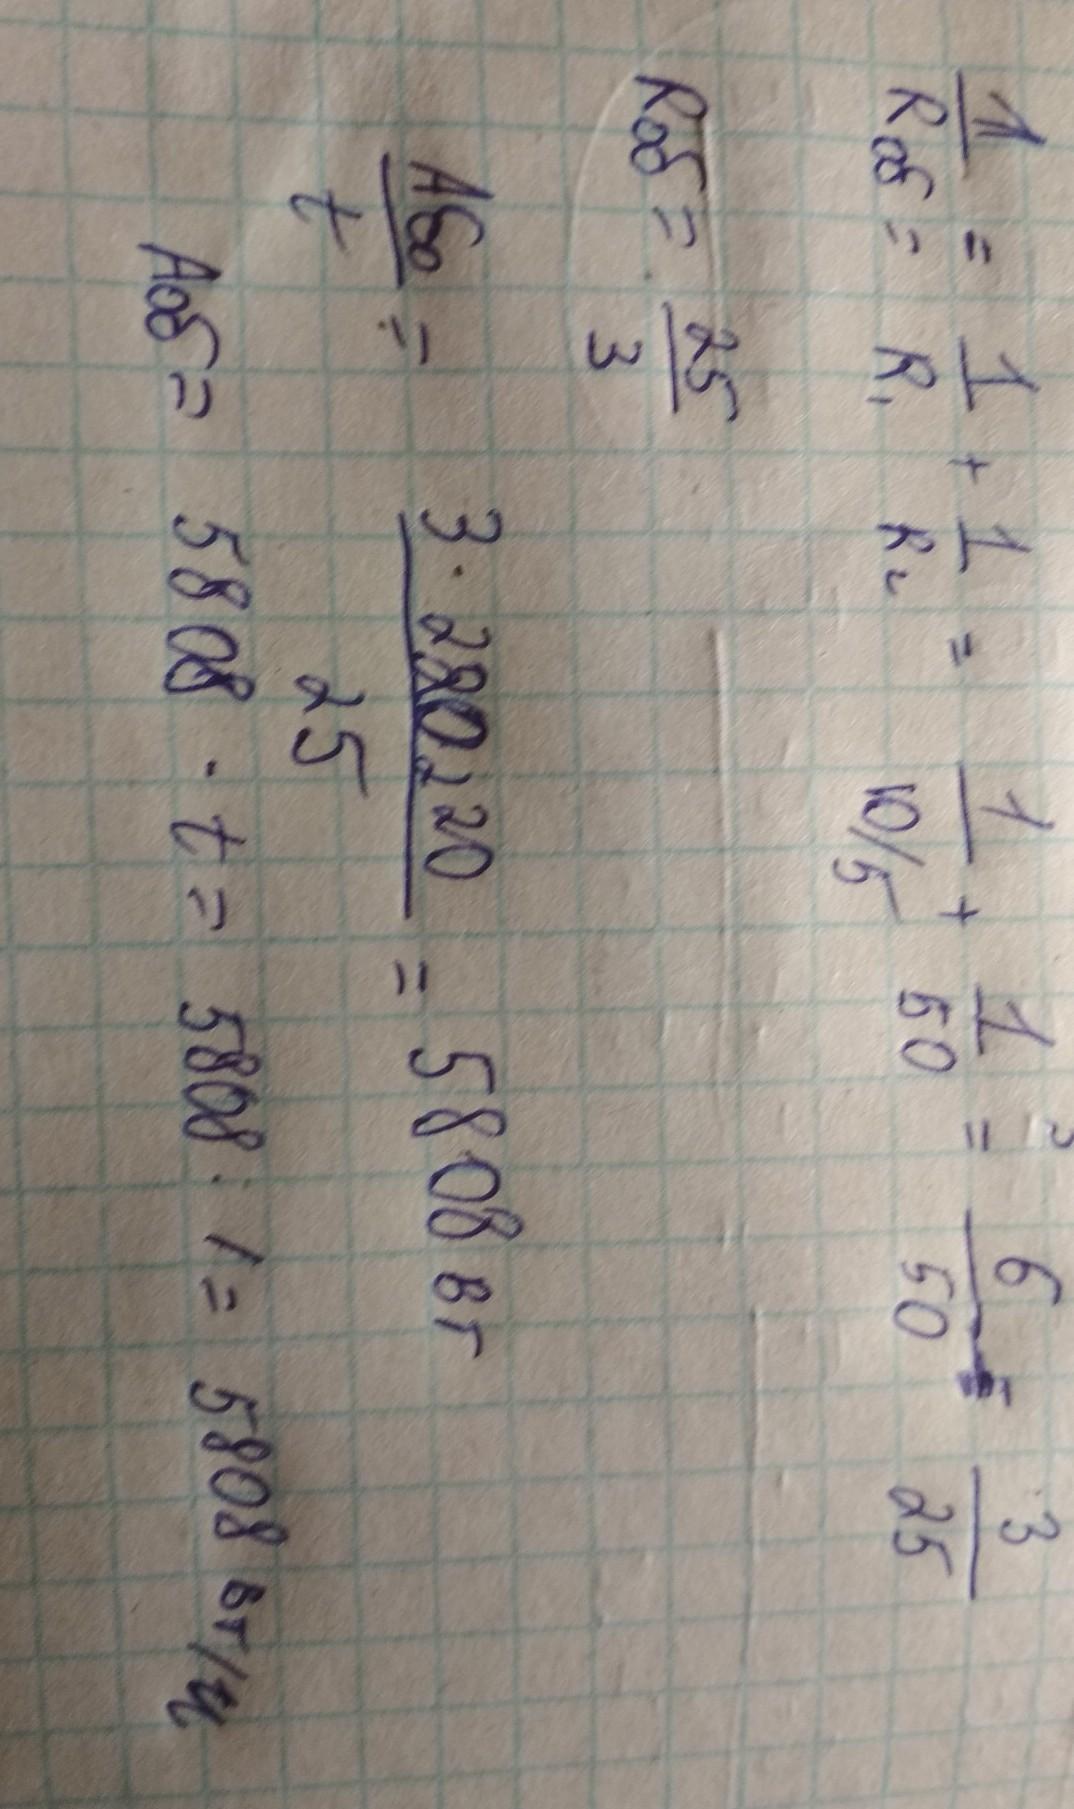 1/Rоб = 1/R₁ + 1/R₂ = 1/10/5 + 1/50 = 6/50 = 3/25
Rоб = 25/3
Aоб/t = 3·220220/25 = 5808 вт
Aоб = 5808 · t = 5808 · 1 = 5808 вт/ч